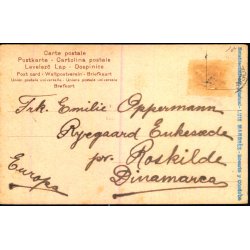 Carte postale
Postkarte - Cartolina postale
Levelező Lap - Dopisnice
Post card - Weltpostverein - Briefkaart
Union postale universelle Unione postale universale
Brefkort
Frk. Emilie Oppermann
Ryegaard Enkesæde
pr. Roskilde
Europa Dinamarca